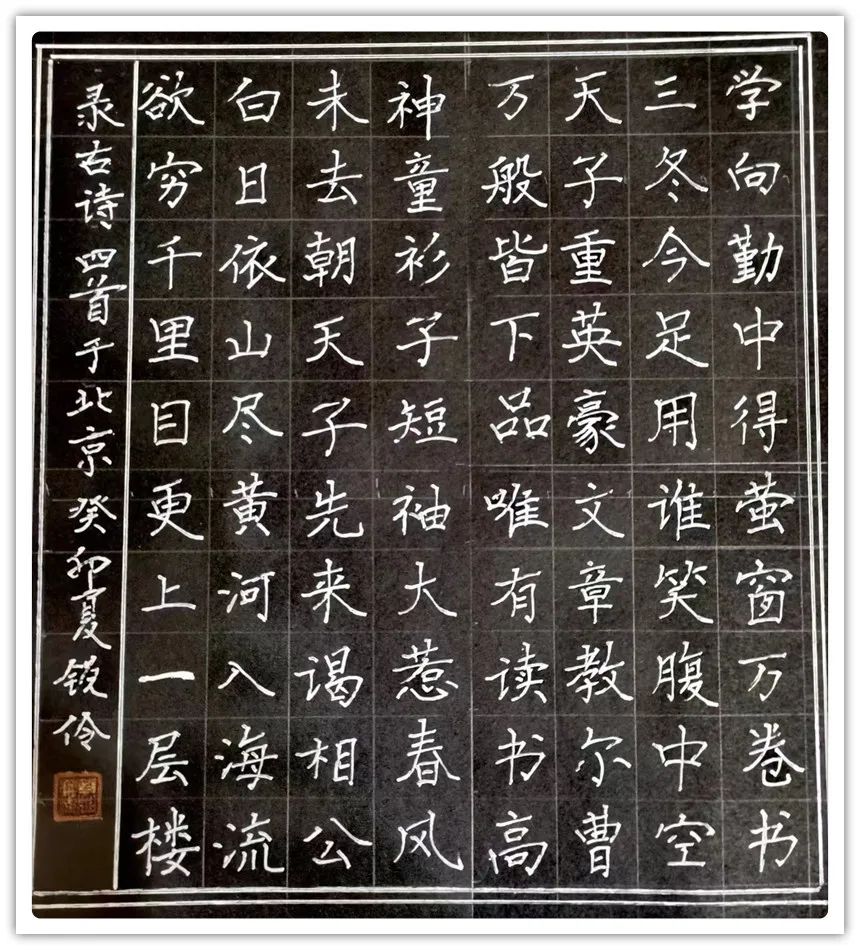 学向勤中得萤窗万卷书
三冬今足用谁笑腹中空
天子重英豪文章教尔曹
万般皆下品唯有读书高
神童衫子短袖大惹春风
未去朝天子先来谒相公
白日依山尽黄河入海流
欲穷千里目更上一层楼
录古诗四首于北京癸卯夏镜伶